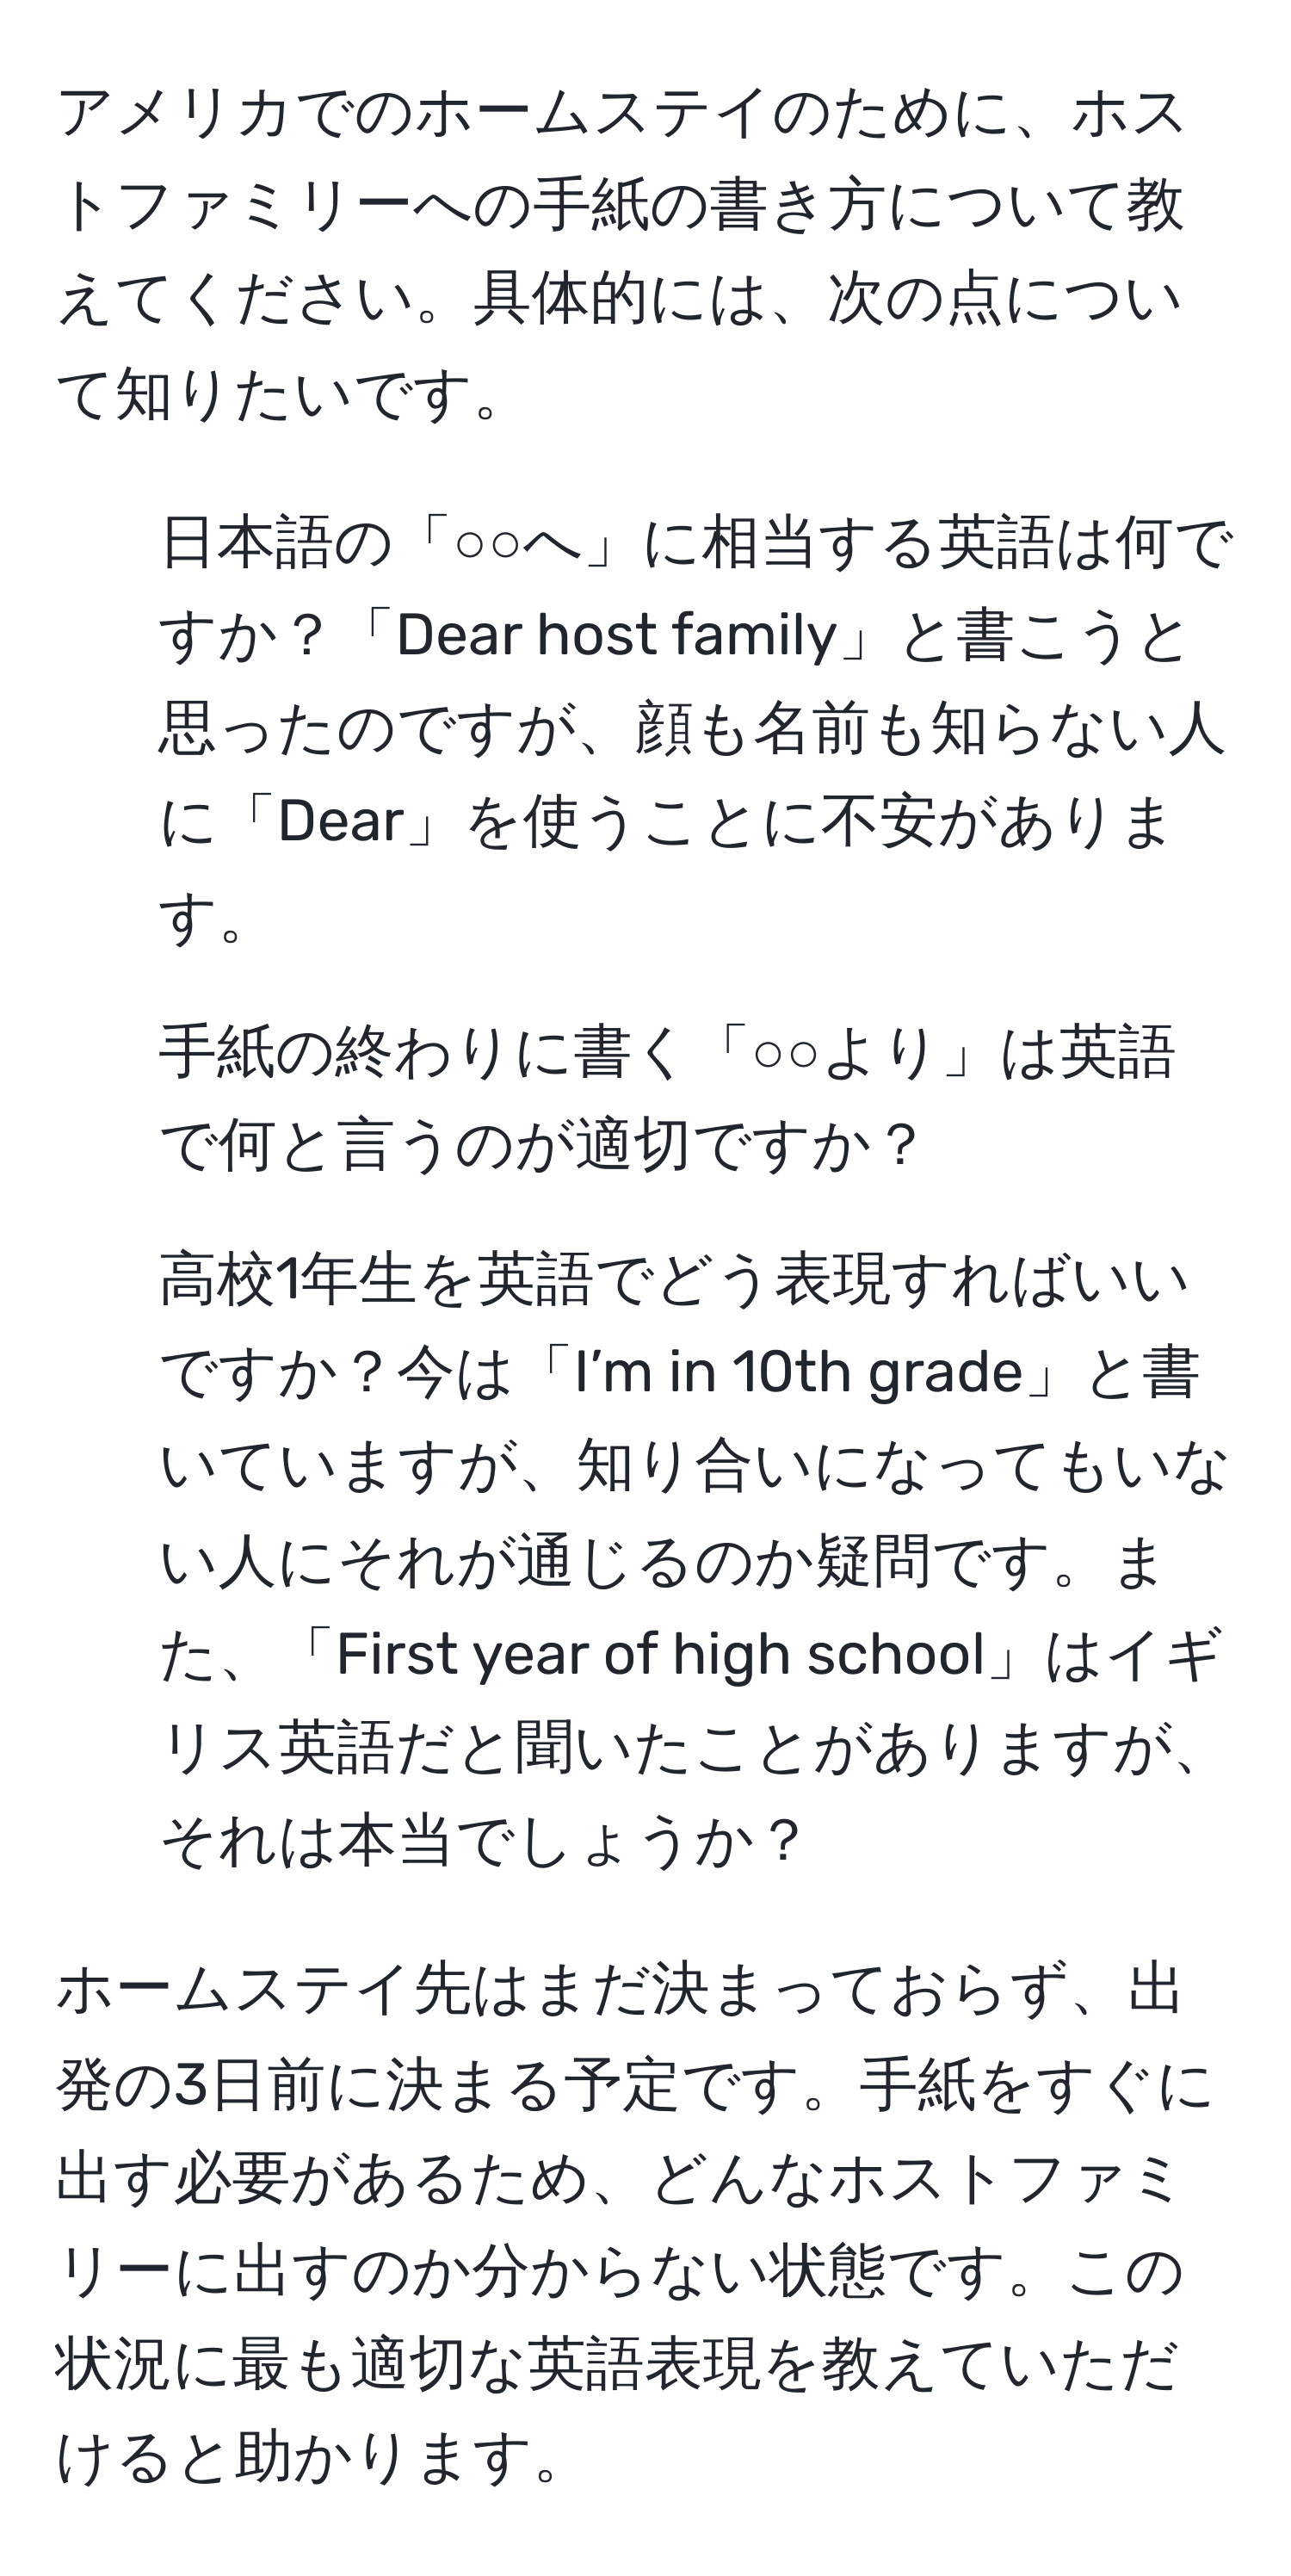 アメリカでのホームステイのために、ホス
トファミリーへの手紙の書き方について教
えてください。具体的には、次の点につい
て知りたいです。
日本語の「○○へ」に相当する英語は何で
すか？「Dear host family」と書こうと
思ったのですが、顔も名前も知らない人
に「Dear」を使うことに不安がありま
す。
手紙の終わりに書く「○○より」は英語
で何と言うのが適切ですか？
高校1年生を英語でどう表現すればいい
ですか？今は「I’m in 10th grade」と書
いていますが、知り合いになってもいな
い人にそれが通じるのか疑問です。ま
た、「First year of high school」はイギ
リス英語だと聞いたことがありますが、
それは本当でしょうか？
ホームステイ先はまだ決まっておらず、出
発の3日前に決まる予定です。手紙をすぐに
出す必要があるため、どんなホストファミ
リーに出すのか分からない状態です。この
状況に最も適切な英語表現を教えていただ
けると助かります。